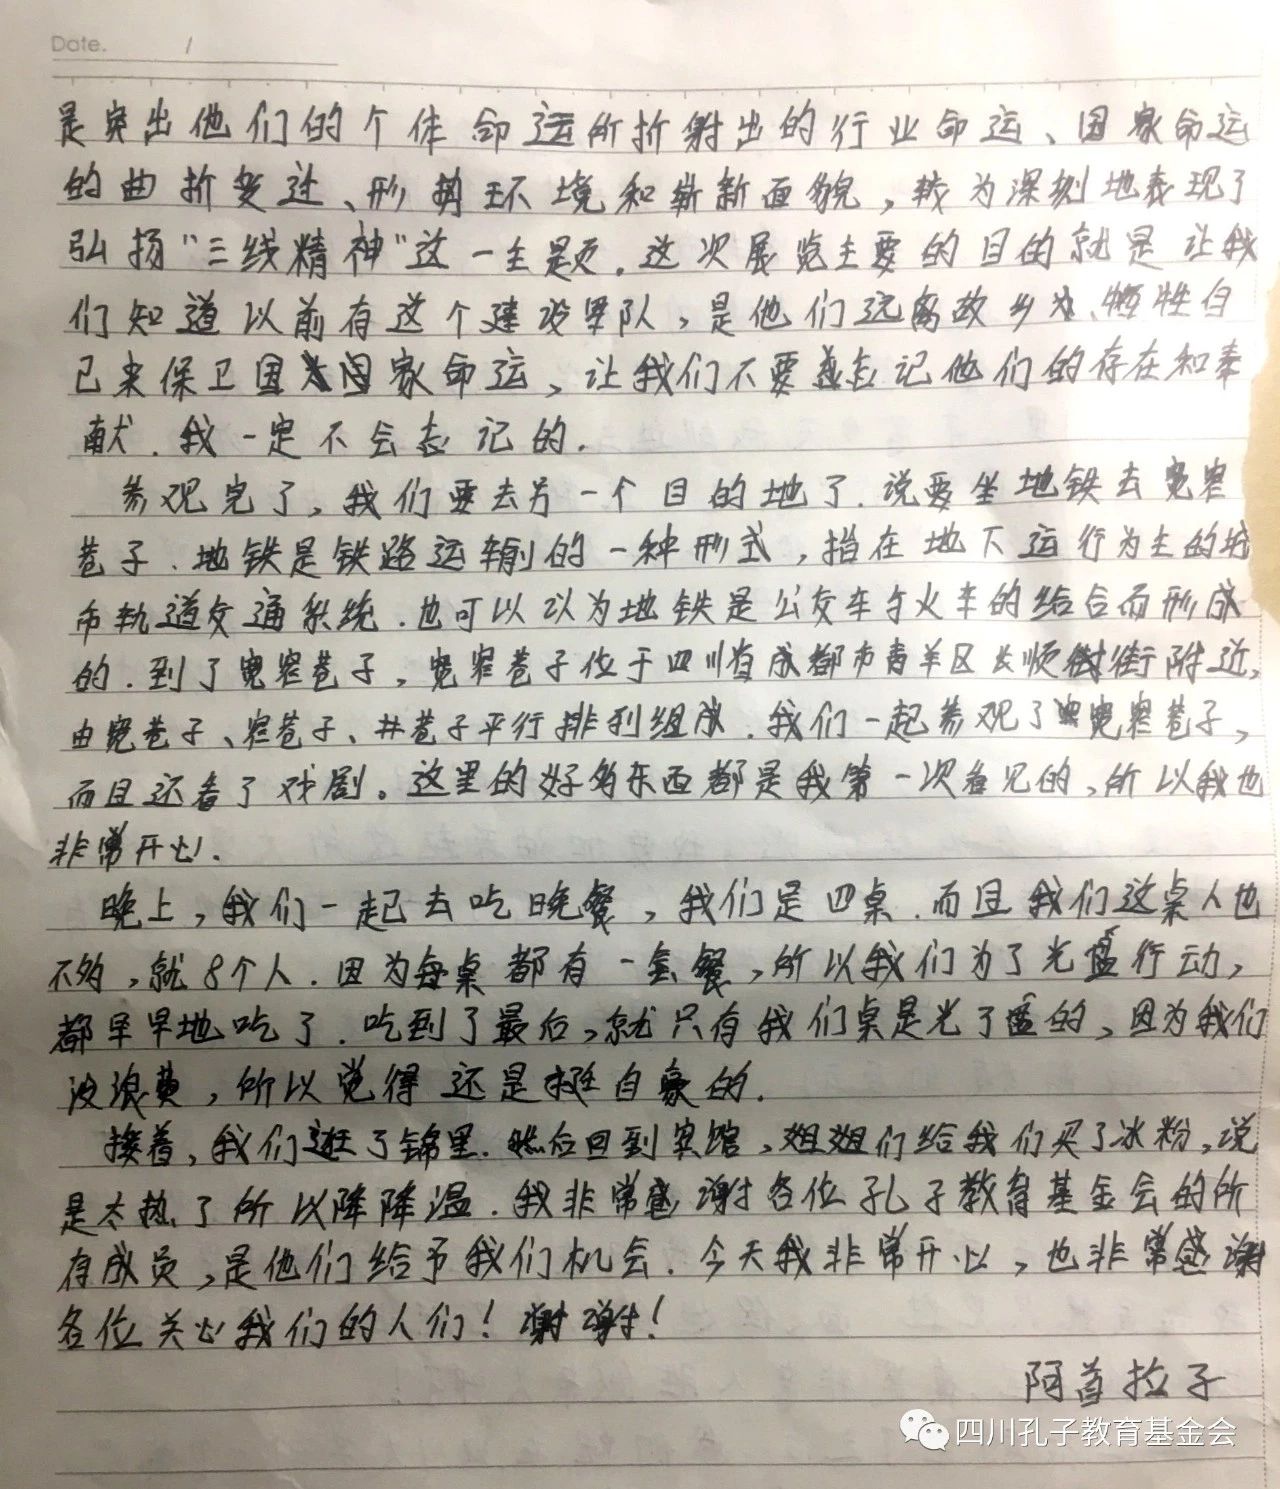 Date. 1
是突出他们的个体命运所折射出的行业命运、国家命运
的曲折变迁、形势环境和崭新面貌，较为深刻地表现了
弘扬"三线精神"这一主题．这次展览主要的目的就是让我
们知道以前有这个建设军队，是他们远离故乡、牺牲自
己来保卫国家命运，让我们不要忘记他们的存在和奉
献．我一定不会忘记的．
参观完了，我们要去另一个目的地了．说要坐地铁去宽窄
巷子．地铁是铁路运输的一种形式，指在地下运行为主的城
市轨道交通系统．也可以以为地铁是公交车与火车的结合而形成
的．到了宽窄巷子，宽窄巷子位于四川省成都市青羊区长顺街附近，
由宽巷子、窄巷子、井巷子平行排列组成．我们一起参观了宽窄巷子，
而且还看了戏剧。这里的好多东西都是我第一次看见的，所以我也
非常开心．
晚上，我们一起去吃晚餐，我们是四桌．而且我们这桌人也
不多，就8个人．因为每桌都有一套餐，所以我们为了光盘行动，
都早早地吃了．吃到了最后，就只有我们桌是光了盘的，因为我们
没浪费，所以觉得还是挺自豪的．
接着，我们逛了锦里．然后回到宾馆，姐姐们给我们买了冰粉，说
是太热了所以降降温．我非常感谢各位孔子教育基金会的所
有成员，是他们给予我们机会．今天我非常开心，也非常感谢
各位关心我们的人们！谢谢！
阿首拉子
四川孔子教育基金会